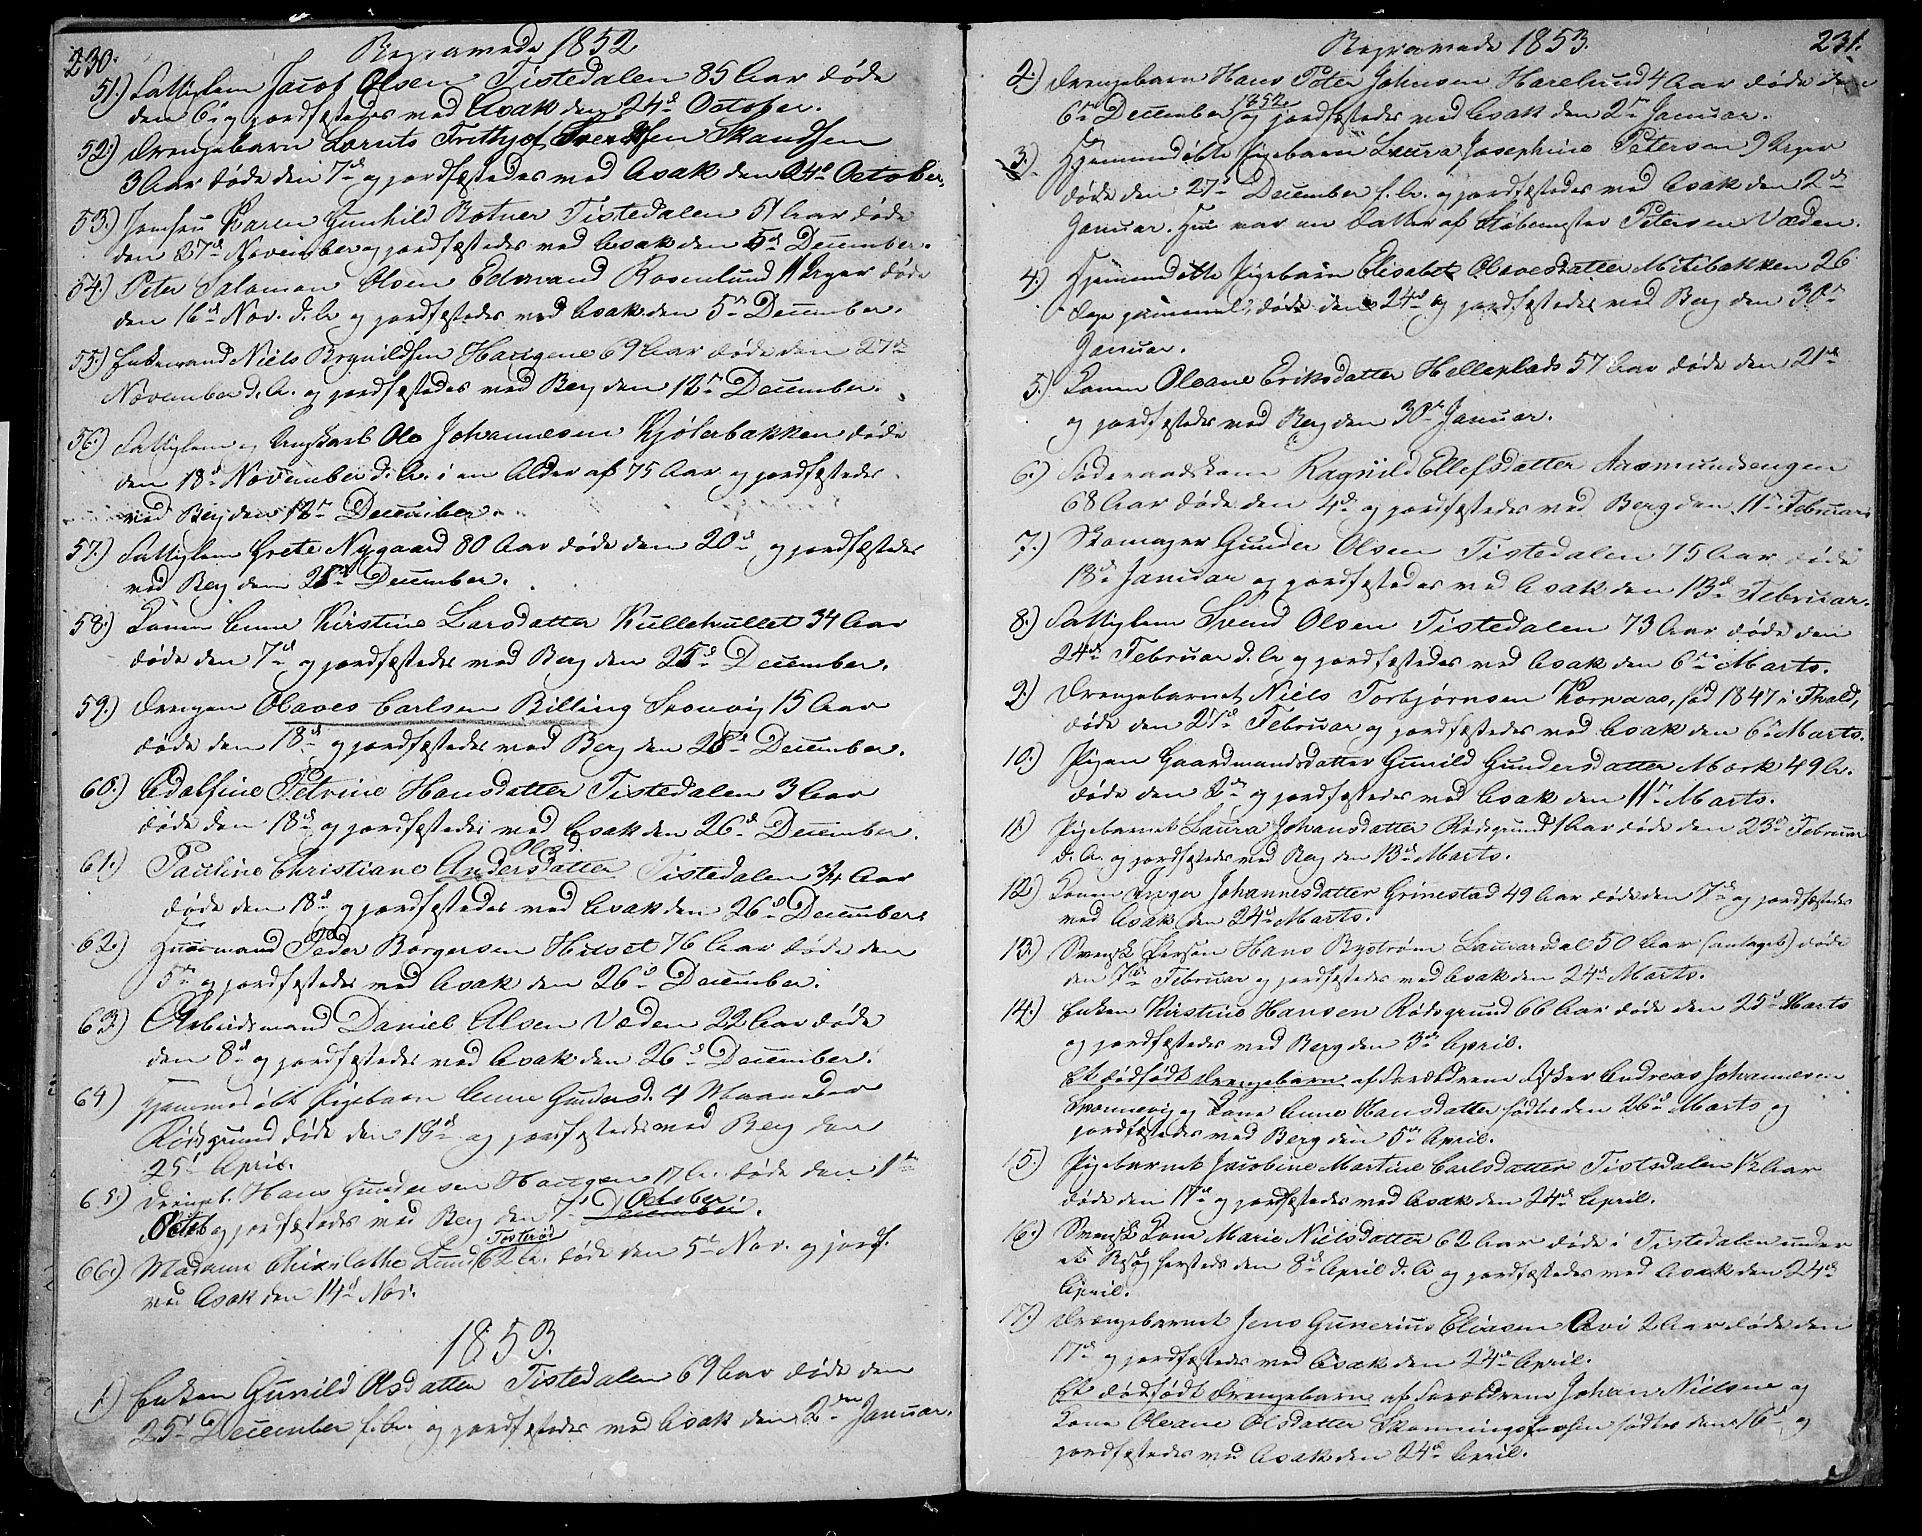 230.
Begravede 1852
51.) Fattiglem Jacob Olsen Tistedalen 85 Aar døde
den 6 og jordfæstedes ved Asak den 24d October.
52.) Drengebarn Lornts Frithjof Svendsen Skandsen
3 Aar døde den 7d og jordfæstedes ved Asak den 24d October.
53.) Jomfru Karen Gunhild Botner Tistedalen 51 Aar døde
den 27d November og jordfæstedes ved Asak den 5d December.
54.) Peter Salamon Olsen Edmand Rosenlund 11 Uger døde
den 16d Nov. d. A. og jordfæstedes ved Asak den 5te December.
55.) Enkemand Niels Brynildsen Haugene 69 Aar døde den 27de
November d. A. og jordfæstedes ved Berg den 12te December.
56.) Fattiglem og Ungkarl Ole Johannesen Kjølerbakken døde
den 18d November d. A. i en Alder af 75 Aar og jordfæstedes
ved Berg den 12te December.
57.) Fattiglem Grete Nygaard 80 Aar døde den 20d og jordfæstedes
ved Berg den 25d December.
58.) Konen Anne Kirstine Larsdatter Kullehullet 34 Aar
døde den 7d og jordfæstedes ved Berg den 25d December.
59.) Drengen Olaves Carlsen Billing Skonvig 15 Aar
døde den 18d og jordfæstedes ved Berg den 25d December.
60.) Adolfine Petrine Hansdatter Tistedalen 3 Aar
døde den 18d og jordfæstedes ved Asak den 26d December.
Olsd.
61.) Pauline Christiane Andersdatter Tistedalen 3/4 Aar
døde den 18d og jordfæstedes ved Asak den 26d December
62.) Huusmand Peder Børgersen Hulset 76 Aar døde den
5te og jordfæstedes ved Asak den 26d December.
63.) Arbeidsmand Daniel Olsen Væden 22 Aar døde
den 8d og jordfæstedes ved Asak den 26d December.
64.) Hjemmedøbt Pigebarn Anne Gundersd. 4 Maaneder
Rødsgrund døde den 18d og jordfæstedes ved Berg den
25d April.
65.) Drengeb. Hans Gundersen Haugen 17 A. døde den 1te
Octob og jordfæstedes ved Berg den 7d December. October.
Tosterød
66.) Madame Lund 62 A. døde den 5d Nov. og jordf.
ved Asak den 14d Nov.
1853.
1.) Enken Gunild Olsdatter Tistedalen 69 Aar døde den
25d December f. A. og jordfæstedes ved Asak den 2den Januar.
231.
Begravede 1853.
2.) Drengebarn Hans Peter Johnsen Harelund 4 Aar døde den
6te December 1852 og jordfæstedes ved Asak den 2den Januar.
3.) Hjemmedøbte Pigebarn Laura Josephine Petersen 9 Uger
døde den 27de December f. A. og jordfæstedes ved Asak den 2den
Januar. Hun var en Datter af Støbemester Petersen Væden.
4.) Hjemmedøbte Pigebarn Elisabet Olavesdatter Mitibakken 26
Dage gammel, døde den 24d og jordfæstedes ved Berg den 30te
Januar.
5.) Konen Oleane Eriksdatter Helleplads 57 Aar døde den 21d
og jordfæstedes ved Berg den 30te Januar.
6.) Føderaadskone Ragnild Ellefsdatter Aasmundsengen
68 Aar døde den 4d og jordfæstedes ved Berg den 11te Februari
7.) Skomager Gunder Olsen Tistedalen 75 Aar døde
18d Januar og jordfæstedes ved Asak den 13d Februar.
8.) Fattiglem Svend Olsen Tistedalen 73 Aar døde den
24de Februar d. A. og jordfæstedes ved Asak den 6te Marts.
9.) Drengebarnet Niels Torbjørnsen Kornaas, fød 1847 i Fhald,
døde den 21d Februar og jordfæstedes ved Asak den 6te Marts.
10.) Pigen Gaardmandsdatter Gunild Gundersdatter Mork 49 A.
døde den 2den og jordfæstedes ved Asak den 11te Marts.
11) Pigebarnet Laura Johansdatter Rødsgrund 1 Aar døde den 23d Februar
d. A. og jordfæstedes ved Berg den 13d Marts.
12.) Konen Inger Johannesdatter Grimestad 49 Aar døde den 7d og jordfæstedes
ved Asak den 24d Marts.
13.) Svensk Person Hans Bystrøm Laurardal 50 Aar (antaget) døde
den 7de Februar og jordfæstedes ved Asak den 24d Marts.
14.) Enken Kirstine Hansen Rødsgrund 66 Aar døde den 25d Marts
og jordfæstedes ved Berg den 3de April.
Et dødfødt Drengebarn af Forældrene Fisker Andreas Johannesen
Skonnevig og Kone Anne Hansdatter fødtes den 26d Marts og
jordfæstedes ved Berg den 5te April.
15.) Pigebarnet Jacobine Martine Carlsdatter Tistedalen 1½ Aar
døde den 17d og jordfæstedes ved Asak den 24d April.
16.) Svensk Kone Marie Nielsdatter 62 Aar døde i Tistedalen under
et Besøg hersteds den 8d April d. A. og jordfæstedes ved Asak den 24de
April.
17.) Drengebarnet Jens Gunerius Eliasen Avi 2 Aar døde den
17d og jordfæstedes ved Asak den 24d April.
Et dødfødt Drengebarn af Forældrene Johan Nielsen og
Kone Oleane Olsdatter Skonningsfossen fødtes den 16d og
jordfæstedes ved Asak den 24d April.